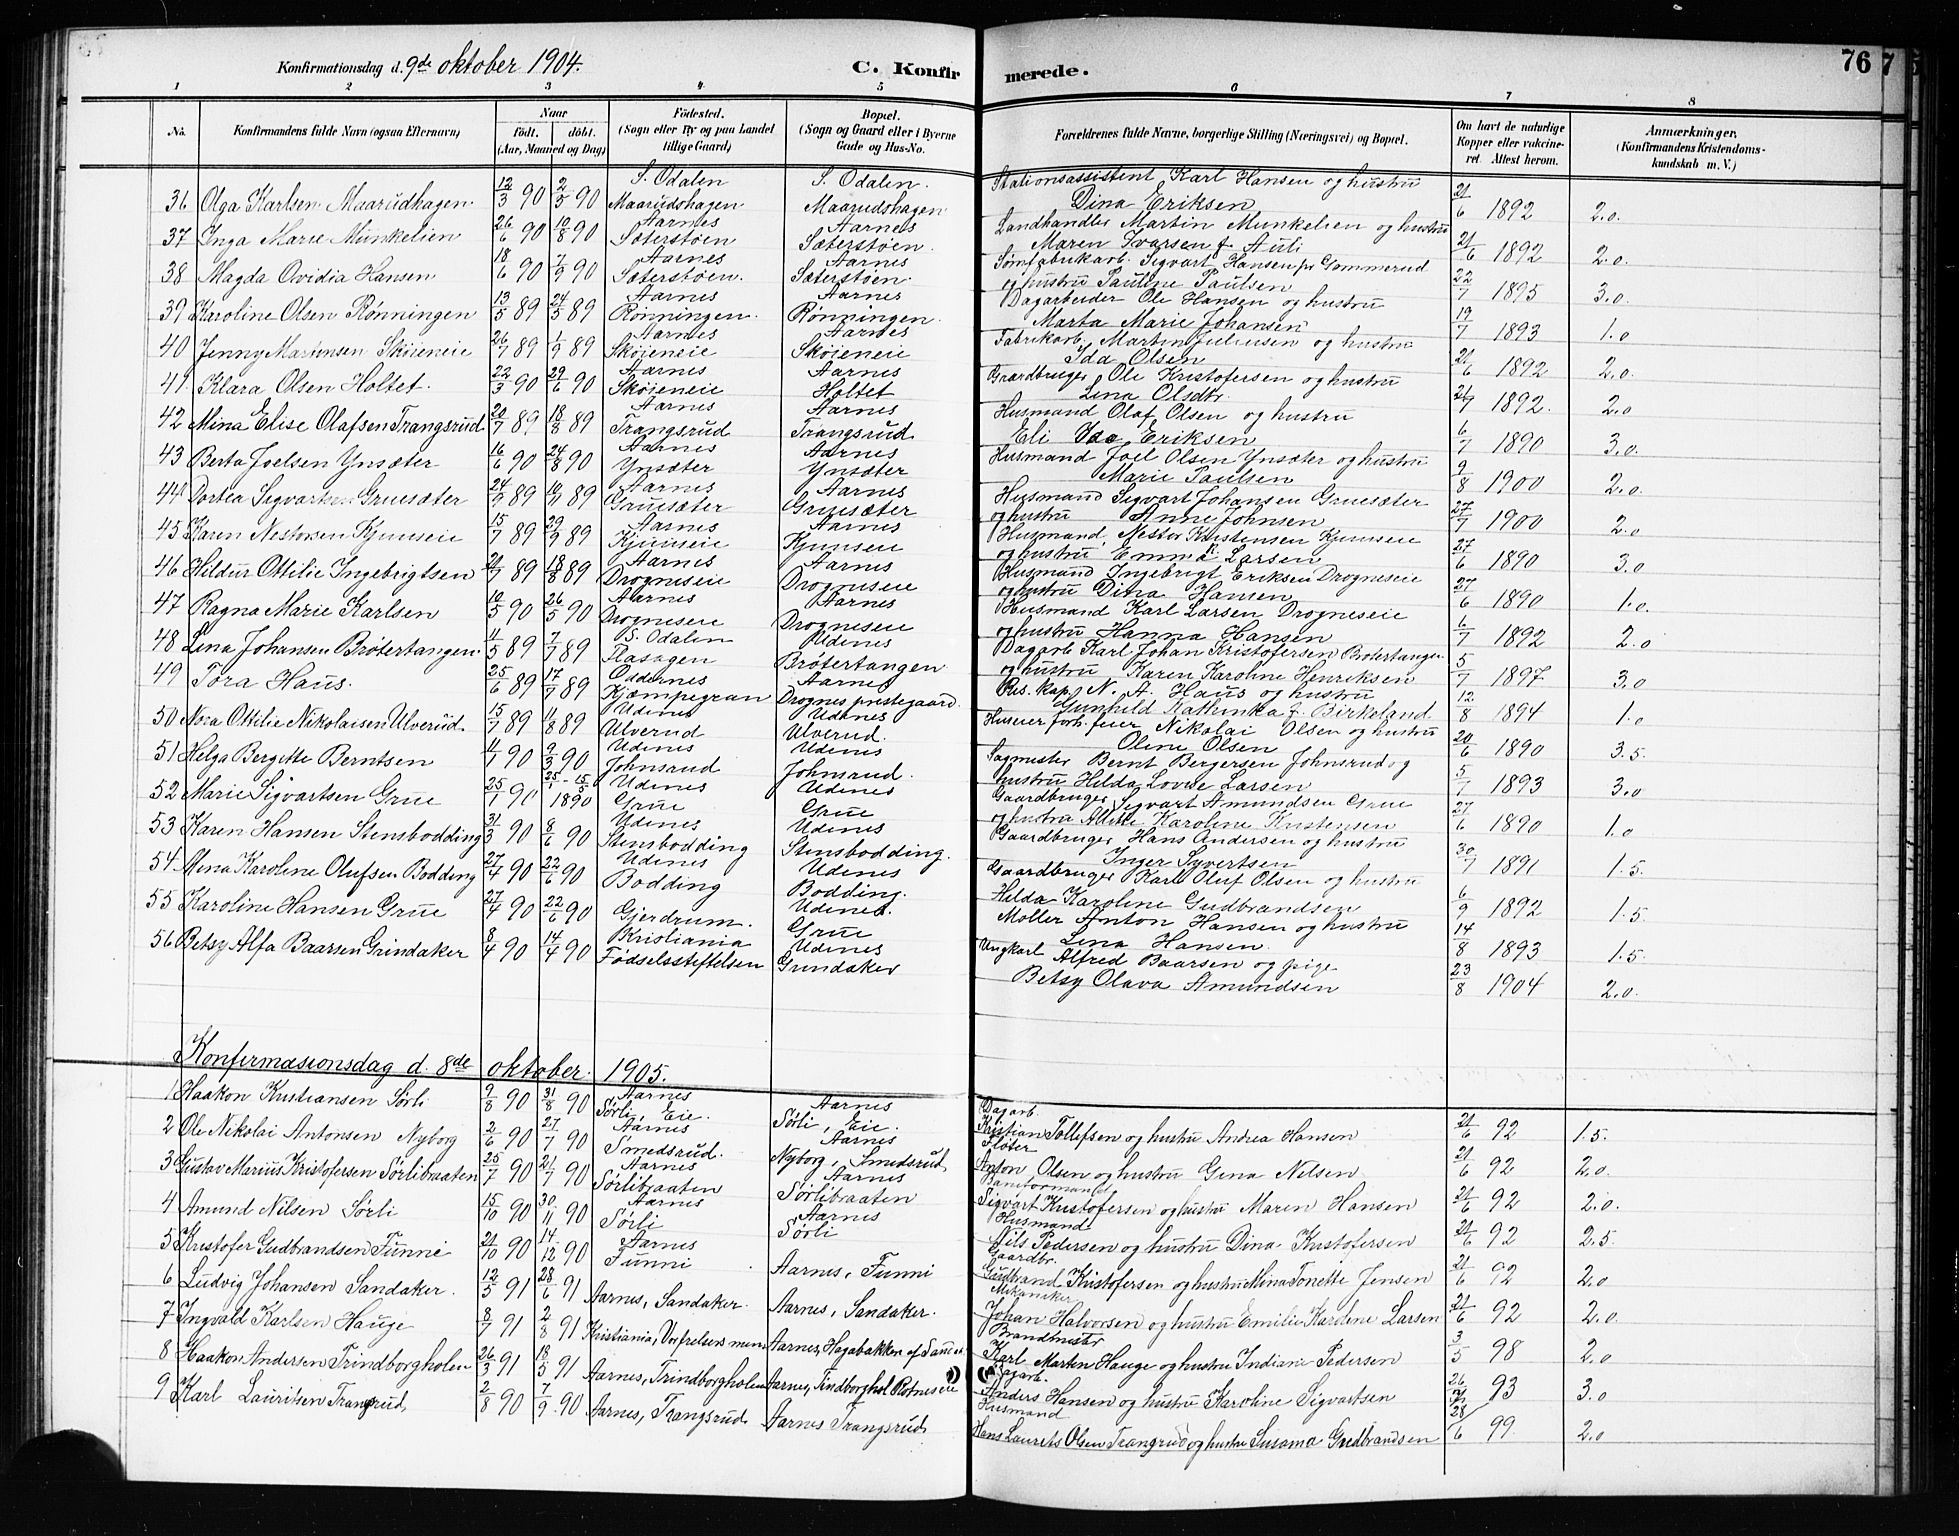 Konfirmationsdag d. 9de oktober 1904. C. Konfirmerede. 76
1 2 3 4 5 6 7 8
No. Konfirmandens fulde Navn (ogsaa Efternavn) Naar født. døbt. (Aar, Maaned og Dag) Fødested. (Sogn eller By og paa Landet tillige Gaard) Bopæl. (Sogn og Gaard eller i Byerne Gade og Hus-No. Forældrenes fulde Navne, borgerlige Stilling (Næringsvei) og Bopæl. Om havt de naturlige Kopper eller vakcineret. Attest herom. Anmærkninger. (Konfirmandens Kristendomskundskab m. V.)
36 Olga Karlsen Maarudhagen 12/3 90 2/5 90 S. Odalen Maarudshagen S. Odalen. Maarudshagen Stationsassistent Karl Hansen og hustru Dina Eriksen 21/6 1892 2.0
37 Inga Marie Munkelien 26/6 90 10/8 90 Aarnes Sæterstøen Aarnes Sæterstøen. Landhandler Martin Munkelien og hustru Maren Ivarsen f. Auli 21/6 1892 2.0
38 Magda Ovidia Hansen 18/6 90 7/9 90 Aarnes Sæterstøen. Aarnes Sæterstøen. Sømfabrikarb. Sigvart Hansen fr Gommerud og hustru Pauline Paulsen 22/7 1895 3.0
39 Karoline Olsen Rønningen 13/5 89 24/5 89 Aarnes Rønningen. Aarnes Rønningen. Dagarbeider Ole Hansen og hustru Marta Marie Johansen 19/7 1893 1.0
40 Jenny Martinsen Skøieneie 26/7 89 1/9 89 Aarnes Skøieneie Aarnes Skøieneie Fabrikarb. Martin Juliussen og hustru Ida Olsen 21/6 1892 2.0
41. Klara Olsen Holtet. 22/3 90 29/6 90 Aarnes Skøieneie Aarnes Holtet Gaardbruger Ole Kristofersen og hustru Lina Olsdtr. 21/7 1892. 2.0
42 Mina Elise Olafsen Trangsrud 20/7 89 18/8 89 Aarnes Trangsrud Aarnes Trangsrud Husmand Olaf Olsen og hustru Eli Eriksen 6/7 1890 3.0.
43 Berta Joelsen Ynsæter 16/6 90 24/8 90 Aarnes Ynsæter Aarnes Ynsæter Husmand Joel Olsen Ynsæter og hustru Marie Paulsen 9/8 1900 2.0
44 Dortea Sigvartsen Gruesæter 24/9 89 89 Aarnes Gruesæter Aarnes Gruesæter Husmand Sigvart Johansen Gruesæter og hustru Anne Johnsen 27/7 1900 2.0
45 Karen Nestorsen Kjunseie 15/7 89 29/9 89 Aarnes Kjunseie Aarnes Kjunseie Husmand Nestor Kristensen Kjunseie og hustru Emma K. Larsen 27/6 1890 3.0
46 Hildur Ottilie Ingebrigtsen 21/7 89 18/8 89 Aarnes Drogneseie Aarnes Drogneseie Husmand Ingebrigt Eriksen Drogneseie og hustru Dina Hansen 27/6 1890 1.0.
47 Ragna Marie Karlsen 10/5 90 26/5 90 Aarnes Drogneseie Aarnes Drogneseie Husmand Karl Larsen Drogneseie og hustru Hanna Hansen 6/7 1892 2.0
48 Lina Johansen Brøtertangen. 11/5 89 7/7 89 S. Odalen Udenes Brøtertangen Dagarb. Karl Johan Kristofersen Brøtertangen og hustru Karen Karoline Henriksen 5/7 1897 3.0
49 Tora Haus. 25/6 89 17/7 89 Oddernes Kjæmpegran Aarnes Drognes prestegaard. Res. kap. N. A. Haus og hustru Gunhild Kathinka f. Birkeland 12/8 1894 1.0
50 Nora Ottilie Nikolaisen Ulverud. 15/7 89 11/8 89 Udenes Ulverud Udenes Ulverud. Huseier forh. feier Nikolai Olsen og hustru Oline Olsen 20/6 1890 3.5.
51 Helga Bergitte Berntsen 11/7 90 9/3 90 Udenes Johnsrud Udenes Johnsrud. Sagmester Bernt Bergersen Johnsrud og hustru Hilda Lovise Larsen 5/7 1893 3.0
52 Marie Sigvartsen Grue 25/1 90 25/1 - 15/5 1890 Udenes Grue Udenes Grue Gaardbruger Sigvart Amundsen Grue og hustru Karoline Kristensen 27/6 1890 1.0
53 Karen Hansen Stensbodding 31/3 90 8/6 90 Udenes Stensbodding Udenes Stensbodding. Gaardbruger Hans Andersen og hustru Inger Syvertsen 30/7 1891 1.5.
54 Mina Karoline Olufsen Bodding 27/4 90 22/6 90 Udenes Bodding Udenes Bodding. Gaardbruger Karl Oluf Olsen og hustru Hilda Karoline Gudbrandsen 6/9 1892 1.5
55 Karoline Hansen Grue 27/4 90 22/6 90 Gjerdrum. Udenes. Grue Møller Anton Hansen og hustru Lina Hansen. 14/8 1893 1.5.
56 Betsy Alfa Baarsen Grindaker 8/4 90 14/4 90 Kristiania Fødselsstiftelsen Udenes Grindaker Ungkarl Alfred Baarsen og pige Betsy Olava Amundsen 23/8 1904 2.0.
Konfirmasionsdag d. 8de oktober 1905.
1 Haakon Kristiansen Sørli 9/8 90 31/8 90 Aarnes Sørli, Eie. Aarnes Sørli, Eie. Dagarb. Kristian Tollefsen og hustru Andrea Hansen 21/6 92 1.5.
2 Ole Nikolai Antonsen Nyborg 2/6 90 27/7 90 Aarnes Smedsrud. Aarnes Nyborg, Smedsrud Fløter Anton Olsen og hustru Gina Nilsen 21/6 92 2.0.
3 Gustav Marius Kristofersen Sørlibraaten 25/7 90 21/7 90 Aarnes Sørlibraaten Aarnes Sørlibraaten Baneformand Sigvart Kristofersen og hustru Maren Hansen 21/6 92 2.0.
4 Amund Nilsen Sørli 15/10 90 30/11 90 Aarnes Sørli Aarnes Sørli Husmand Nils Pedersen og hustru Dina Kristofersen 21/6 92 2.5.
5 Kristofer Gudbrandsen Funni 21/10 90 14/12 90 Aarnes Funni Aarnes, Funni Gaardbr. Gudbrand Kristofersen og hustru Mina Tonette Jensen 21/6 92 2.0
6 Ludvig Johansen Sandaker. 12/5 91 28/6 91 Aarnes, Sandaker. Aarnes, Sandaker. Mekaniker Johan Halvorsen og hustru Emilie Karoline Larsen 21/6 92 2.0
7 Ingvald Karlsen Hauge 8/7 91 2/8 91 Kristiania, Vorfrelsers men. Aarnes, Hagabakken af Sand Brandmester Karl Martin Hauge og hustru Indiana Pedersen 3/5 98 2.0
8 Haakon Andersen Trindborgholen 26/3 91 18/5 91 Aarnes, Trindborgholen Aarnes, Tindborghol Rotneseie Dagarb. Anders Hansen og hustru Karoline Sigvartsen 93 3.0
9 Karl Lauritsen Trangsrud 2/8 90 7/9 90 Aarnes, Trangsrud Aarnes Trangsrud Husmand Hans Laurits Olsen Trangrud og hustru Susanna Gudbrandsen 28/6 99. 2.0